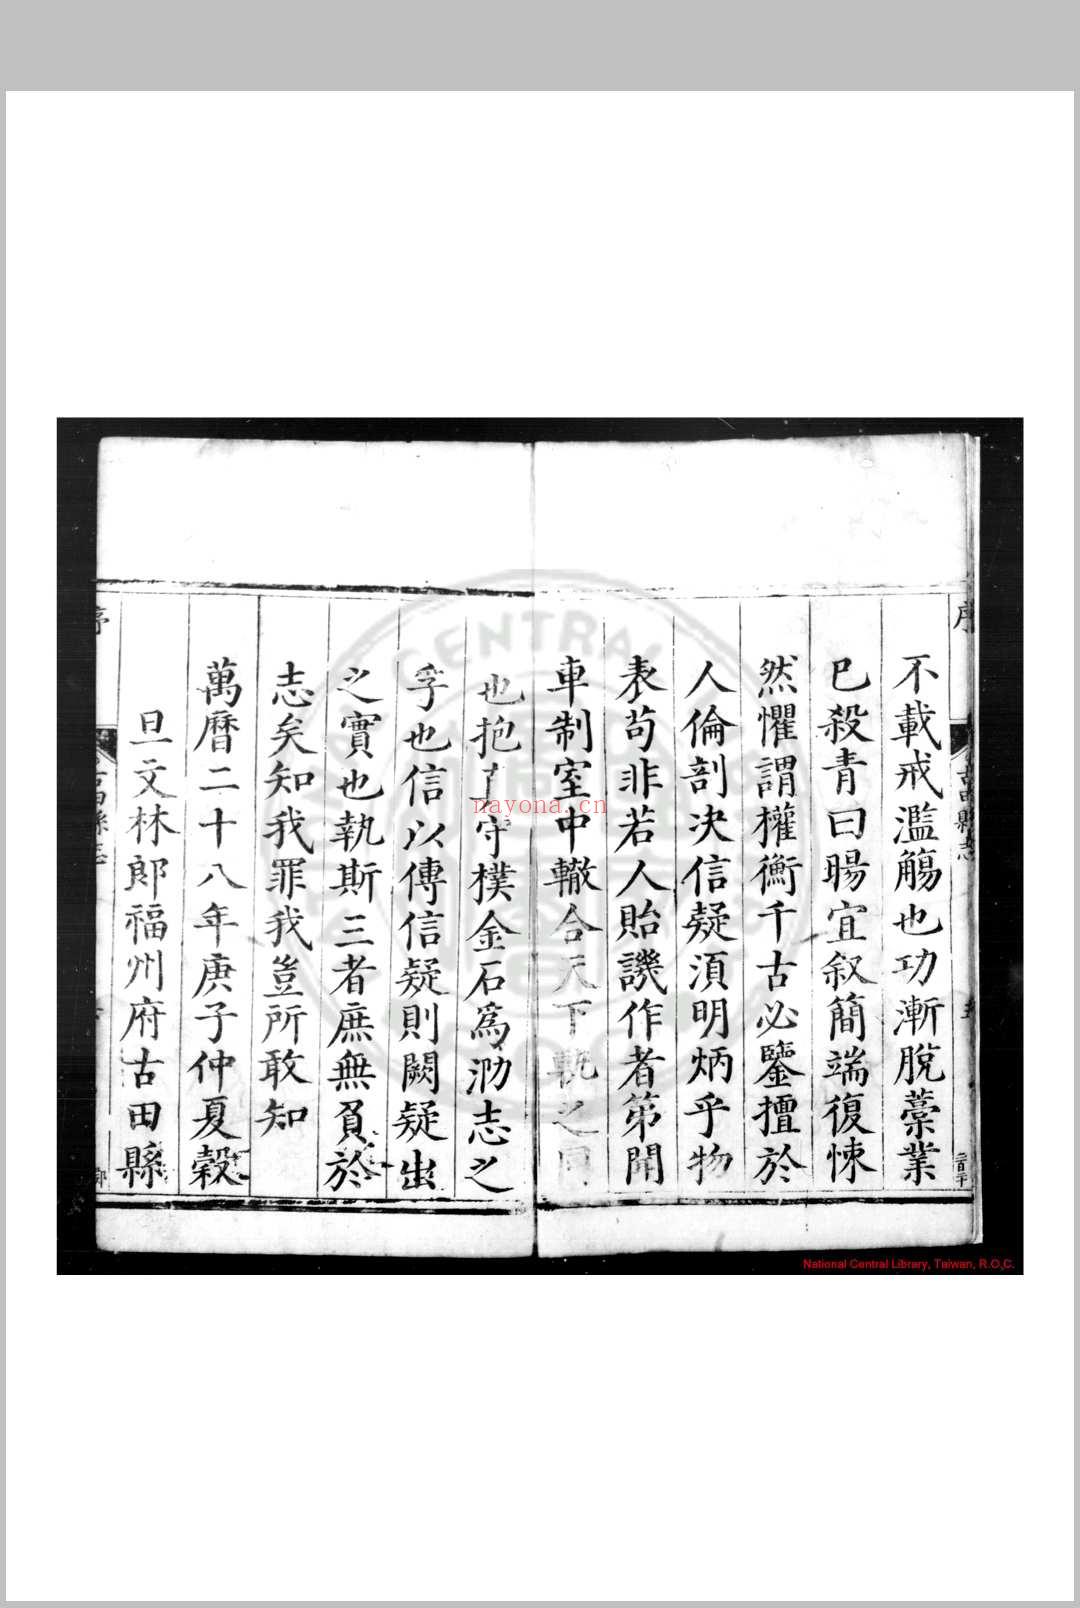 不載戒濫觴也功漸脫藁業
已殺青曰暘宜叙簡端復悚
然懼謂權衡千古必鑒擅於
人倫剖决信疑須明炳乎物
表苟非若人貽譏作者第開
車制室中轍合天下軌之同
也抱守樸金石爲泐志之
孚也信以傳信疑則闕疑出
之實也執斯三者庶無負於
志矣知我罪我豈所敢知
萬曆二十八年庚子仲夏穀
旦文林郎福州府古田縣
序
古田縣志
五
序
古田縣志
nayona.cn
CENTRAL
National Central Library, Taiwan, R.O.C.